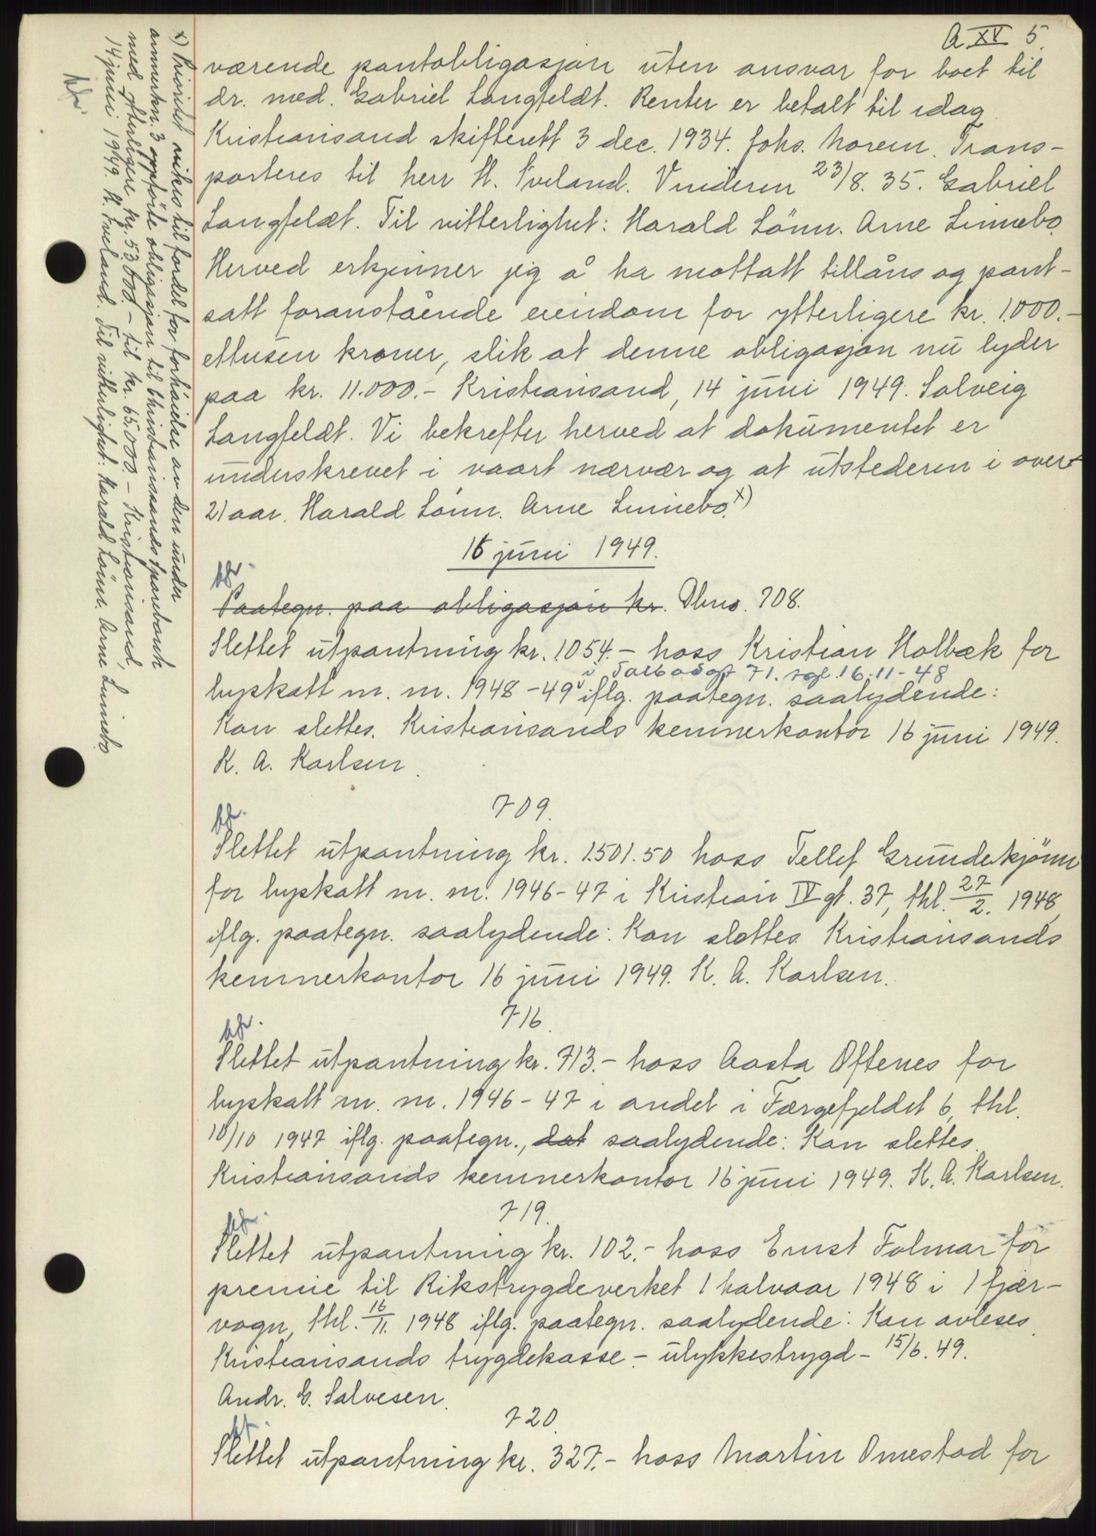 A XV 5.
værende pantobligasjon uten ansvar for boet til
dr. med. Gabriel Langfeldt. Renter er betalt til idag.
Kristiansand skifterett 3 dec. 1934. Johs. Norem. Trans-
porteres til herr H. Sveland. Vinderen 23/8. 35. Gabriel
Langfeldt. Til vitterlighet: Harald Lönn. Arne Linnebo.
Herved erkjenner jeg å ha mottatt tillåns og pant-
satt foranstående eiendom for ytterligere kr. 1.000.-
ettusen kroner, slik at denne obligasjon nu lyder
paa kr. 11.000.- Kristiansand, 14 juni 1949. Solveig
Langfeldt. Vi bekrefter herved at dokumentet er
underskrevet i vaart nærvær og at utstederen i over
21 aar. Harald Lönn. Arne Linnebo. x)
16 juni 1949.
Paategn. paa obligasjon kr. Dbno. 708.
Slettet utpantning kr. 1054.- hoss Kristian Holbæk for
i Talbodgt 71. tgl. 16.11-48
byskatt m. m. 1948-49 iflg. paategn. saalydende:
Kan slettes. Kristiansands kemnerkontor 16 juni 1949.
K. A. Karlsen.
709.
Slettet utpantning kr. 1501.50 hoss Tellef Grundekjönn
for byskatt m. m. 1946-47 i Kristian IV gt. 37, thl. 27/2. 1948,
iflg. paategn. saalydende: Kan slettes. Kristiansands
kemnerkontor 16 juni 1949. K. A. Karlsen.
716.
Slettet utpantning kr. 713.- hoss Aasta Oftenes for
byskatt m. m. 1946-47 i andel i Færgefjeldet 6, thl.
10/10 1947 iflg. paategn., dat saalydende: Kan slettes.
Kristiansands kemnerkontor 16 juni 1949. K. A. Karlsen.
719.
Slettet utpantning kr. 102.- hoss Ernst Folmar for
premie til Rikstrygdeverket 1 halvaar 1948 i 1 fjær-
vogn, thl. 16/11. 1948 iflg. paategn. saalydende: Kan avleses.
Kristiansands trygdekasse - ulykkestrygd - 15/6. 49.
Andr. G. Salvesen.
720.
Slettet utpantning kr. 327.- hoss Martin Omestad for
x) Prioritet vikes til fordel for forhöielse av den under
anmerkn. 3 oppförte obligasjon til Christianssands Sparebank
med ytterligere kr. 53.000.- til kr. 65.000.- Kristiansand,
14 juni 1949. H. Sveland. Til vitterlighet: Harald Lönn. Arne Linnebo.